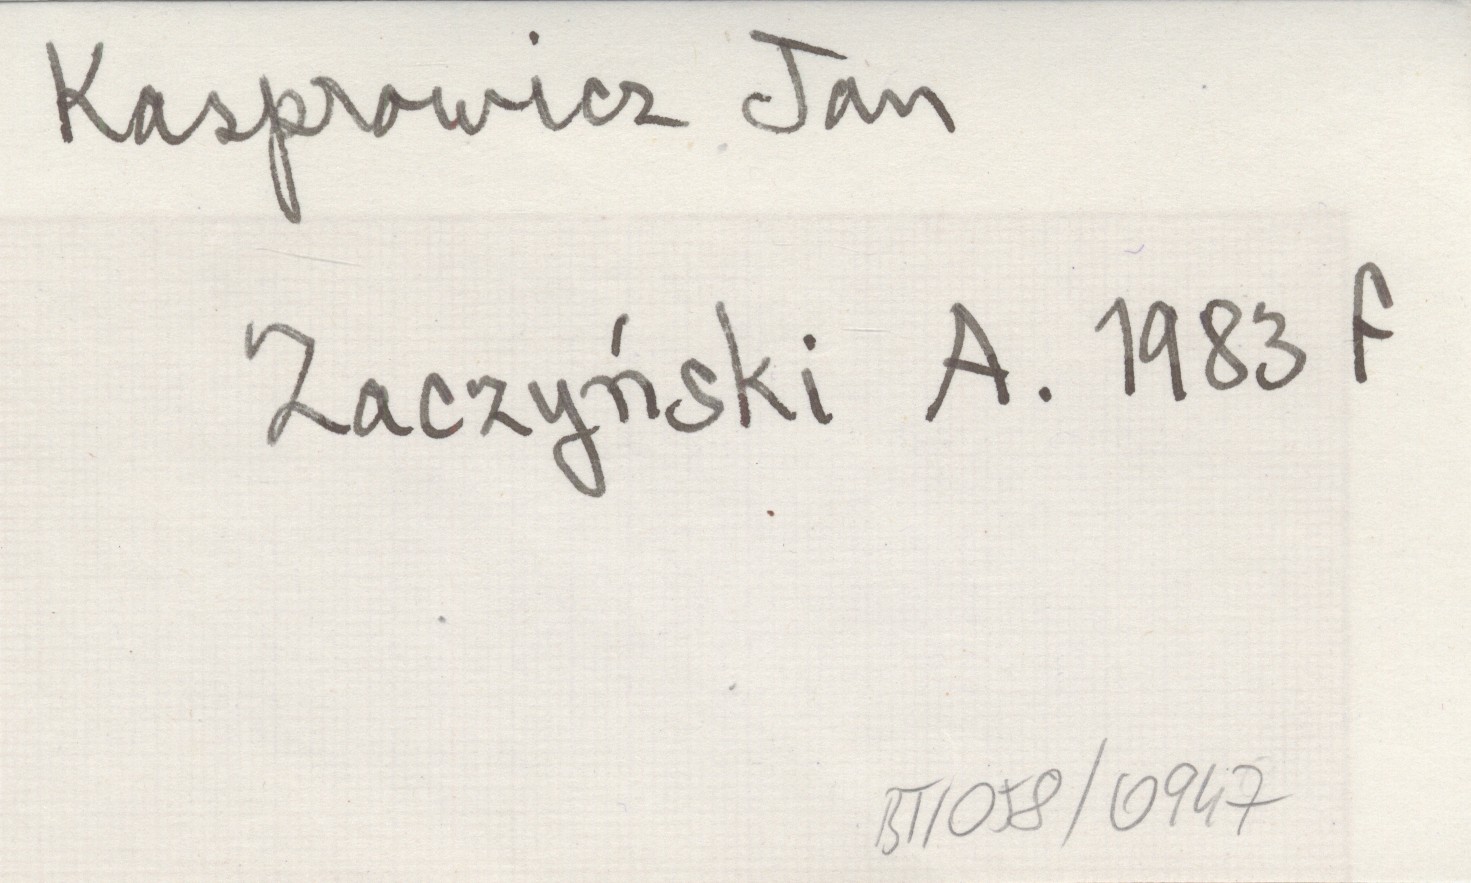 Kasprowicz Jan
Zaczyński A. 1983 F
BT/058/0947